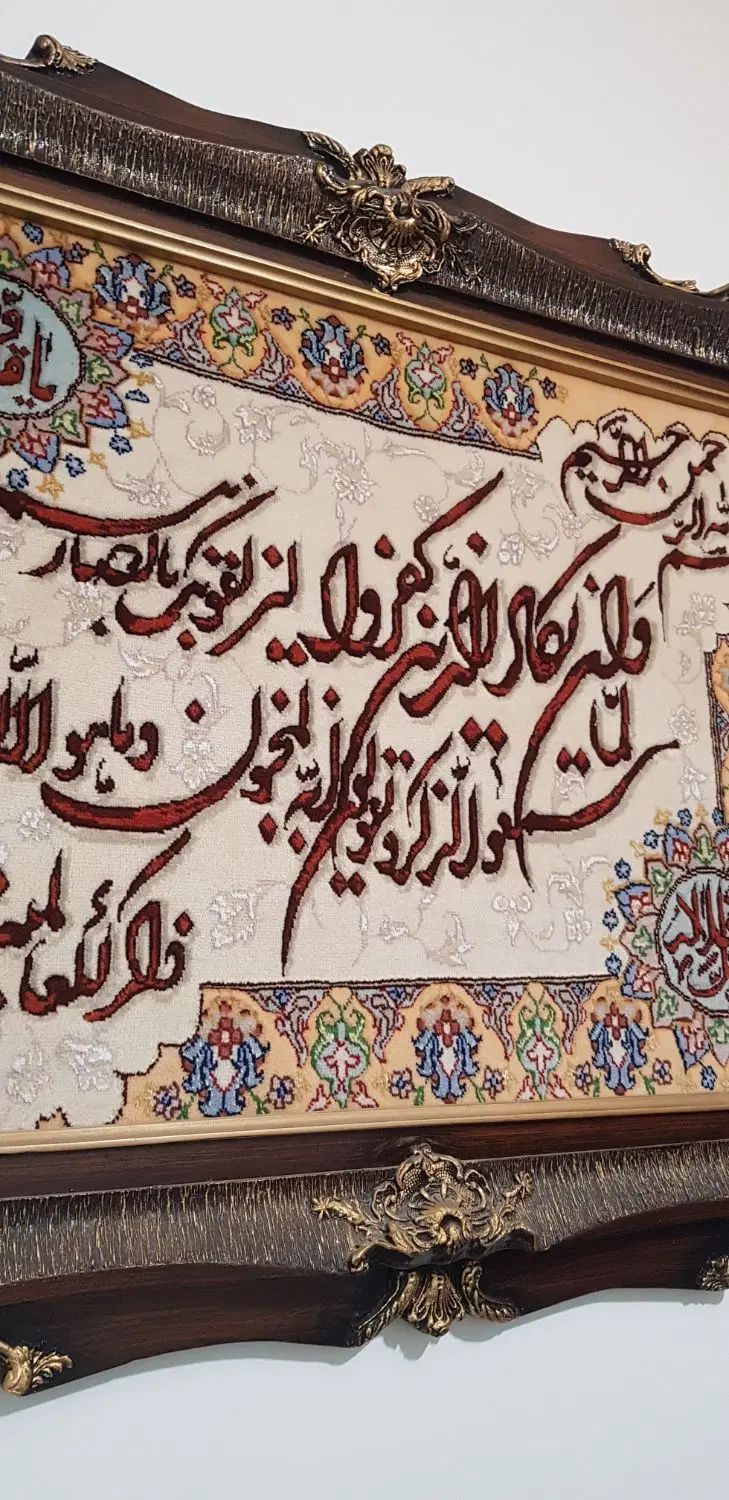 بسم الله الرحمن الرحیم
وان یکاد الذین کفروا لیزلقونک بابصار
لما سمعوا الذکر و یقولون انه لمجنون وما هو الا
ذکر للعالمین